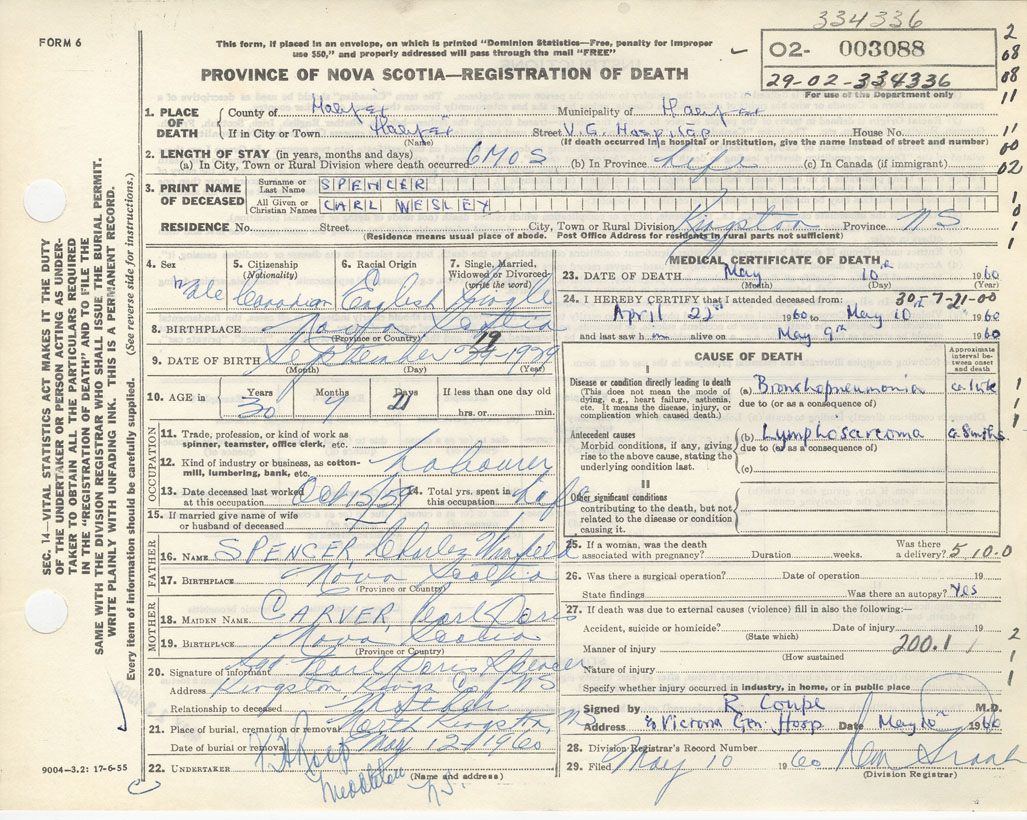 334336
FORM 6
This form, if placed in an envelope, on which is printed "Dominion Statistics—Free, penalty for improper
use $50," and properly addressed will pass through the mail "FREE"
O2- 003088
29-02-334336
For use of the Department only
PROVINCE OF NOVA SCOTIA—REGISTRATION OF DEATH
1. PLACE OF DEATH
County of Halifax Municipality of Halifax
If in City or Town Halifax Street V.G. Hospital House No.
(Name) (If death occurred in a hospital or institution, give the name instead of street and number)
2. LENGTH OF STAY (in years, months and days)
(a) In City, Town or Rural Division where death occurred 6 MOS (b) In Province Life (c) In Canada (if immigrant)
3. PRINT NAME OF DECEASED
Surname or Last Name SPENCER
All Given or Christian Names CARL WESLEY
RESIDENCE No. Street City, Town or Rural Division Kingston Province NS
(Residence means usual place of abode. Post Office Address for residents in rural parts not sufficient)
4. Sex Male
5. Citizenship (Nationality) Canadian
6. Racial Origin English
7. Single, Married, Widowed or Divorced (write the word) Single
8. BIRTHPLACE Nova Scotia
(Province or Country)
9. DATE OF BIRTH September 19 1929
(Month) (Day) (Year)
10. AGE in Years 30 Months 7 Days 21 If less than one day old
hrs. or min.
OCCUPATION
11. Trade, profession, or kind of work as spinner, teamster, office clerk, etc.
12. Kind of industry or business, as cotton-mill, lumbering, bank, etc. Labourer
13. Date deceased last worked at this occupation Oct 15/59
14. Total yrs. spent in this occupation Life
15. If married give name of wife or husband of deceased
FATHER
16. NAME SPENCER, Charles Winfield
17. BIRTHPLACE Nova Scotia
(Province or Country)
MOTHER
18. MAIDEN NAME CARVER, Pearl Doris
19. BIRTHPLACE Nova Scotia
(Province or Country)
20. Signature of informant Sgd Pearl Doris Spencer
Address Kingston Kings Co NS
Relationship to deceased Mother
21. Place of burial, cremation or removal North Kingston NS
Date of burial or removal May 12 1960
22. UNDERTAKER Middleton N.S.
(Name and address)
MEDICAL CERTIFICATE OF DEATH
23. DATE OF DEATH May 10th 1960
(Month) (Day) (Year)
24. I HEREBY CERTIFY that I attended deceased from: 30-7-21-00
April 22nd 1960 to May 10 1960
and last saw him alive on May 9th 1960
CAUSE OF DEATH
Approximate interval between onset and death
I
Disease or condition directly leading to death
(This does not mean the mode of dying, e.g., heart failure, asthenia, etc. It means the disease, injury, or complication which caused death.)
(a) Bronchopneumonia ca. 1 wk
due to (or as a consequence of)
Antecedent causes
Morbid conditions, if any, giving rise to the above cause, stating the underlying condition last.
(b) Lymphosarcoma ca. 8mths
due to (or as a consequence of)
(c)
II
Other significant conditions
contributing to the death, but not related to the disease or condition causing it.
25. If a woman, was the death associated with pregnancy? Duration weeks. Was there a delivery? 5.10.0
26. Was there a surgical operation? Date of operation 19
State findings Was there an autopsy? Yes
27. If death was due to external causes (violence) fill in also the following:—
Accident, suicide or homicide? Date of injury 19
(State which)
Manner of injury 200.1
(How sustained)
Nature of injury
Specify whether injury occurred in industry, in home, or in public place
Signed by R. Coupe M.D.
Address c/o Victoria Gen. Hosp Date May 10th 1960
28. Division Registrar's Record Number
29. Filed May 10 1960
(Division Registrar)
SEC. 14—VITAL STATISTICS ACT MAKES IT THE DUTY
OF THE UNDERTAKER OR PERSON ACTING AS UNDER-
TAKER TO OBTAIN ALL THE PARTICULARS REQUIRED
IN THE "REGISTRATION OF DEATH" AND TO FILE THE
SAME WITH THE DIVISION REGISTRAR WHO SHALL ISSUE THE BURIAL PERMIT.
WRITE PLAINLY WITH UNFADING INK. THIS IS A PERMANENT RECORD.
Every item of information should be carefully supplied. (See reverse side for instructions.)
9004—3.2: 17-6-55
2
68
08
11
11
00
02
1
0
1
1
1
1
1
2
1
1